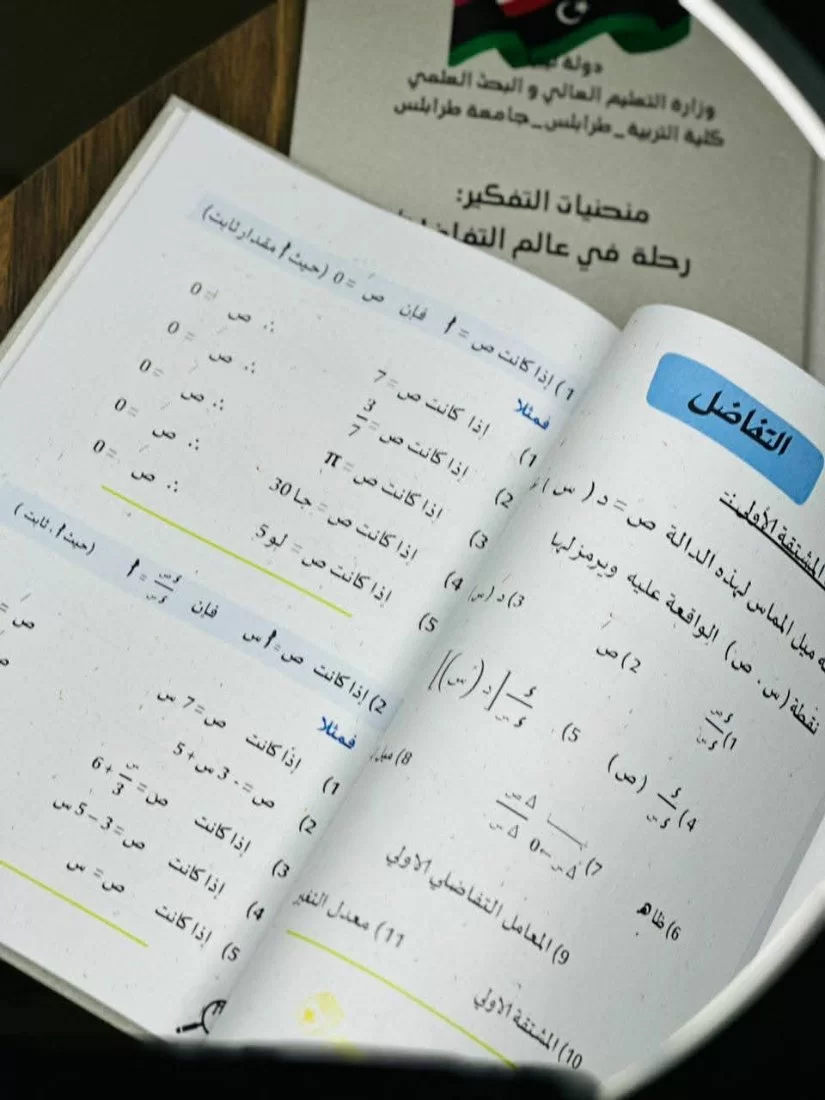 دولة
وزارة التعليم العالي و البحث العلمي
كلية التربية _ طرابلس _ جامعة طرابلس
منحنيات التفكير:
رحلة في عالم
التفاضل
المشتقة الأولى :-
ميل المماس لهذه الدالة ص = د ( س )
نقطة ( س ، ص ) الواقعة عليه ويرمز لها
1) ءص/ءس
2) صَ
3) دَ ( س )
4) ء/ءس ( ص )
5) ء/ءس [ د ( س ) ]
6) ظا هـ
7) نهــا Δس→0 Δص/Δس
8) ميل
9) المعامل التفاضلي الاولي
10) المشتقة الاولي
11) معدل التغير
1) إذا كانت ص = أ فإن صَ = 0 (حيث أ مقدار ثابت)
فمثلا
1) إذا كانت ص = 7 ∴ صَ = 0
2) إذا كانت ص = 3/7 ∴ صَ = 0
3) إذا كانت ص = π ∴ صَ = 0
4) إذا كانت ص = جا 30 ∴ صَ = 0
5) إذا كانت ص = لو 5 ∴ صَ = 0
2) إذا كانت ص = أ س فإن ءص/ءس = أ (حيث أ ، ثابت )
فمثلا
1) إذا كانت ص = 7 س صَ =
2) ص = - 3 س + 5
3) إذا كانت ص = س/3 + 6
4) إذا كانت ص = 3 - 5 س
5) إذا كانت ص = س